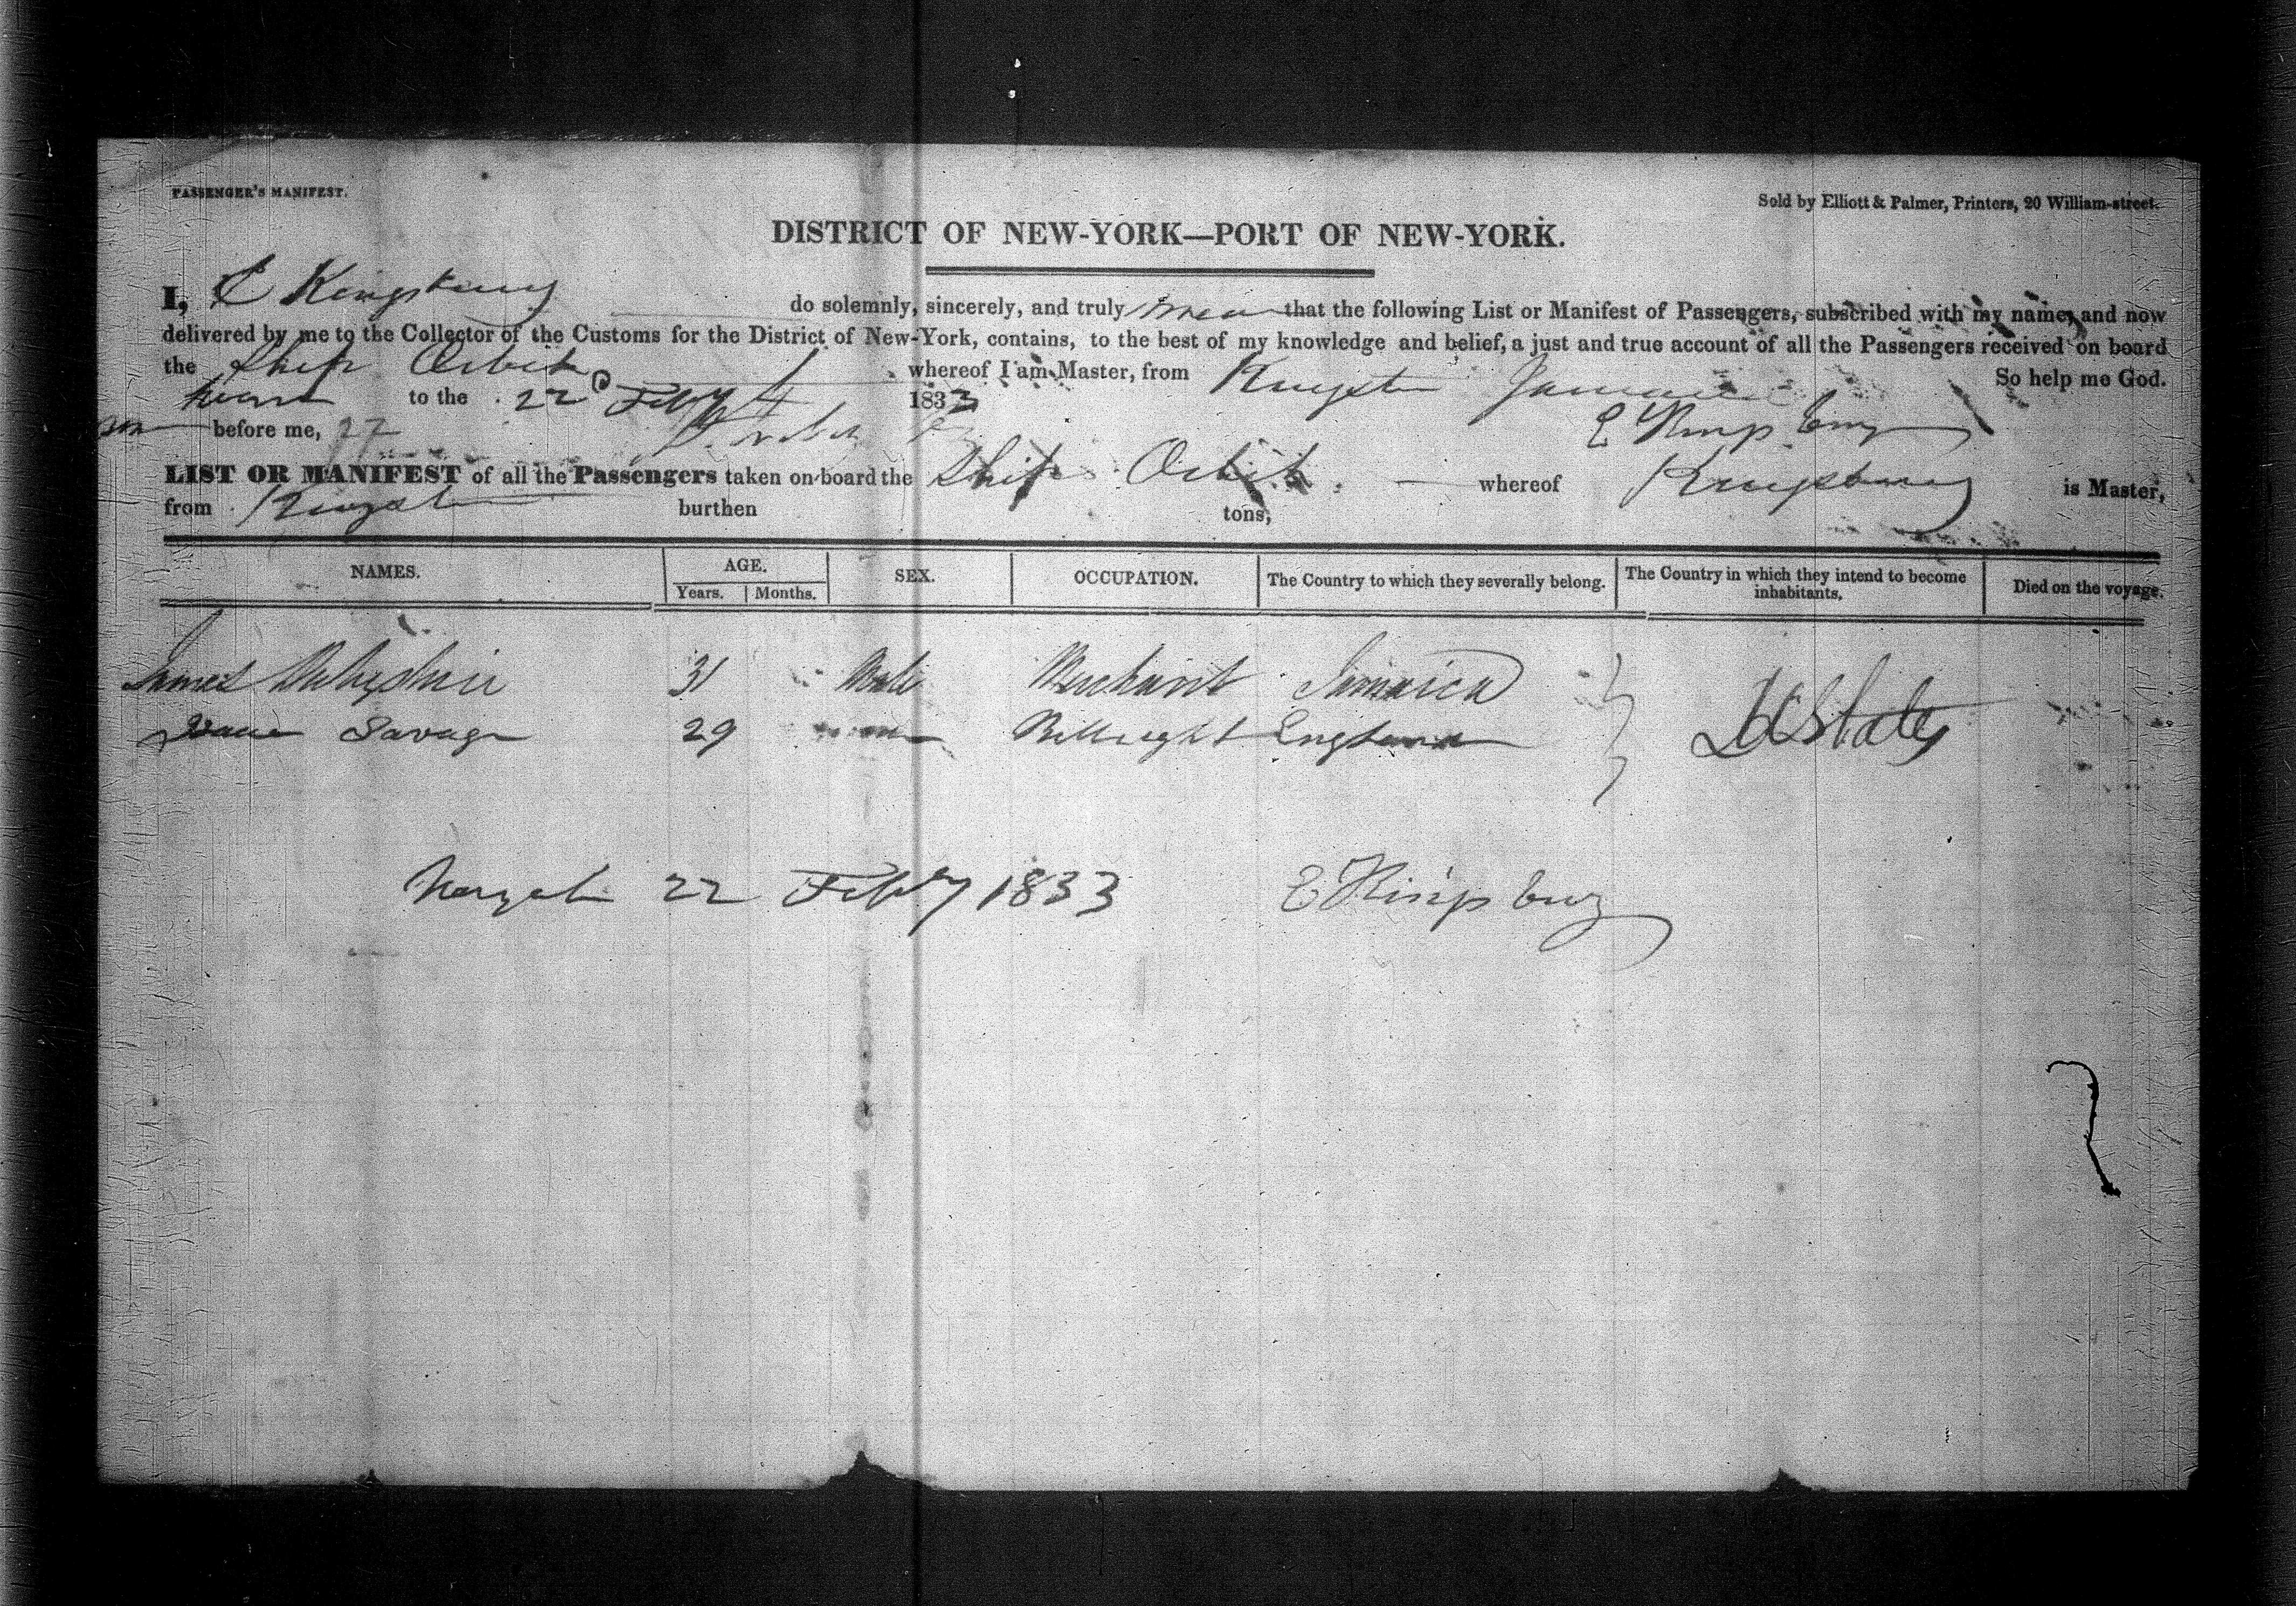 PASSENGER'S MANIFEST.
Sold by Elliott & Palmer, Printers, 20 William-street.
DISTRICT OF NEW-YORK—PORT OF NEW-YORK.
I, E Kingsbury do solemnly, sincerely, and truly swear that the following List or Manifest of Passengers, subscribed with my name, and now
delivered by me to the Collector of the Customs for the District of New-York, contains, to the best of my knowledge and belief, a just and true account of all the Passengers received on board
the Ship Orbit whereof I am Master, from Kingston Jamaica So help me God.
Sworn to the 22 Feby 1833
before me, E Kingsbury
LIST OR MANIFEST of all the Passengers taken on board the Ship Orbit whereof Kingsbury is Master,
from Kingston burthen tons,
NAMES. AGE. SEX. OCCUPATION. The Country to which they severally belong. The Country in which they intend to become inhabitants. Died on the voyage.
Years. Months.
James 31 Male Merchant Jamaica
Savage 29 Millwright England
UStates
22 Feby 1833 E Kingsbury